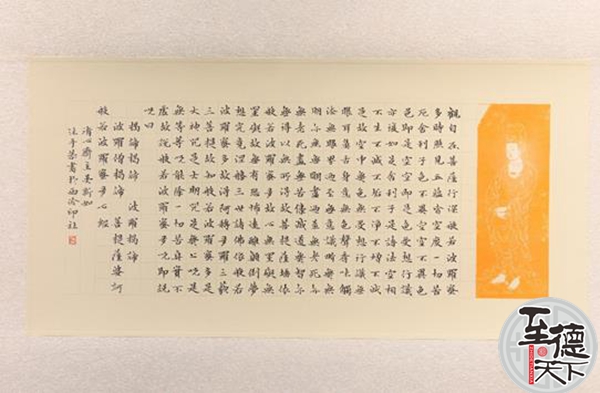 觀自在菩薩行深般若波羅蜜
多時照見五蘊皆空度一切苦
厄舍利子色不異空空不異色
色即是空空即是色受想行識
亦復如是舍利子是諸法空相
不生不滅不垢不淨不增不減
是故空中無色無受想行識無
眼耳鼻舌身意無色聲香味觸
法無眼界乃至無意識界無無
明亦無無明盡乃至無老死亦
無老死盡無苦集滅道無智亦
無得以無所得故菩提薩埵依
般若波羅蜜多故心無罣礙無
罣礙故無有恐怖遠離顛倒夢
想究竟涅槃三世諸佛依般若
波羅蜜多故得阿耨多羅三藐
三菩提故知般若波羅蜜多是
大神咒是大明咒是無上咒是
無等等咒能除一切苦真實不
虛故說般若波羅蜜多咒即說
咒曰
揭諦揭諦 波羅揭諦
波羅僧揭諦 菩提薩婆訶
般若波羅蜜多心經
清心齋主
書於西泠印社
至德天下